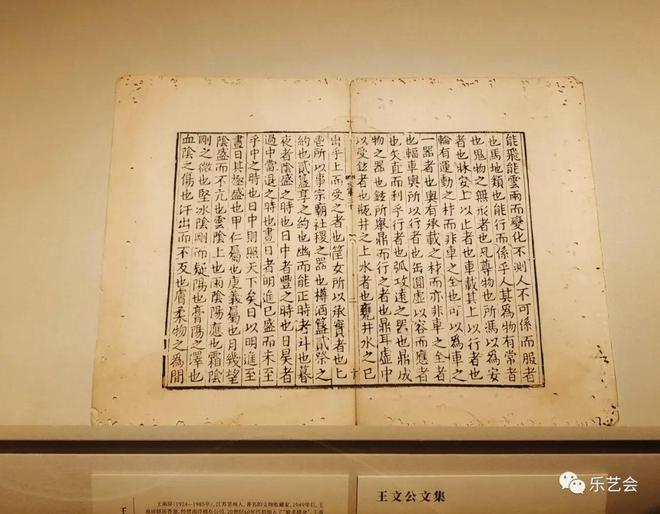 能飛能雲雨而變化不測人不可係而服者
也馬地類也能行而係乎人其為物有常者
也鬼物之無形者也凡尊物也所馮以為安
者也牀安上以止者也車載其上以行者也
輪有運動之材而非車之全也可以為車之
一器者也輿有承載之材而亦非車之全者
也輻車輿所以行者也缶圓虛以容而應者
也矢直而利乎行者也弧攻遠之器也鼎成
物之器也鉉所舉鼎而行之者也鼎耳虛中
以受鉉者也瓶井之上水者也甕井水之已
出乎上而受之者也筐女所以承實者也匕
鬯所以事宗廟社稷之器也樽酒簋貳祭之
約也貳簋享之約也幽而能正時者斗也暮
夜者陰盛之時也日中者豐之時也日昃者
過中當退之時也晝日者明進已盛而未至
乎中之時也日中則照天下矣日以明進至
晝日其極盛也甲仁屬也庚義屬也月幾望
陰盛而不亢也雲陰上也雨陰陽應也霜陰
剛之微也堅冰陰剛而疑陽也膏陽之澤也
血陰之傷也汗出而不反也膚柔物之為間
王
王南屏(1924—1985年),江苏常州人,著名的文物收藏家,1949年后,王
王文公文集
乐艺会